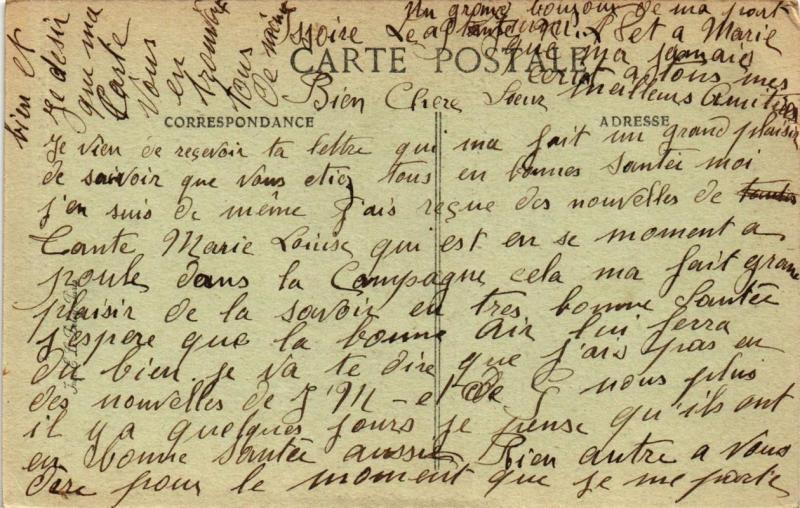 Issoire Le
CARTE POSTALE
CORRESPONDANCE
ADRESSE
Bien Chere Soeur
Je vien de reçevoir ta lettre qui ma fait un grand plaisir
de saivoir que vous etiez tous en bonnes Santée moi
j'en suis de même J'ais reçue des nouvelles de
Tante Marie Louise qui est en se moment a
dans la Campagne cela ma fait grand
plaisir de la savoir en tres bonne Santée
j'espere que la bonne air lui ferra
du bien je va te dire que j'ais pas eu
des nouvelles de J'M - et de G nous plus
il y a quelques jours je pense qu'ils ont
en bonne Santée aussi Rien autre a vous
dire pour le moment que je me porte
bien et
je desir
que ma
Carte
Vous
en
trouve
tous
de même
Un grand bonjour de ma part
et a Marie
que m'a jamais
ecrit a tous mes
meilleurs Amitiées